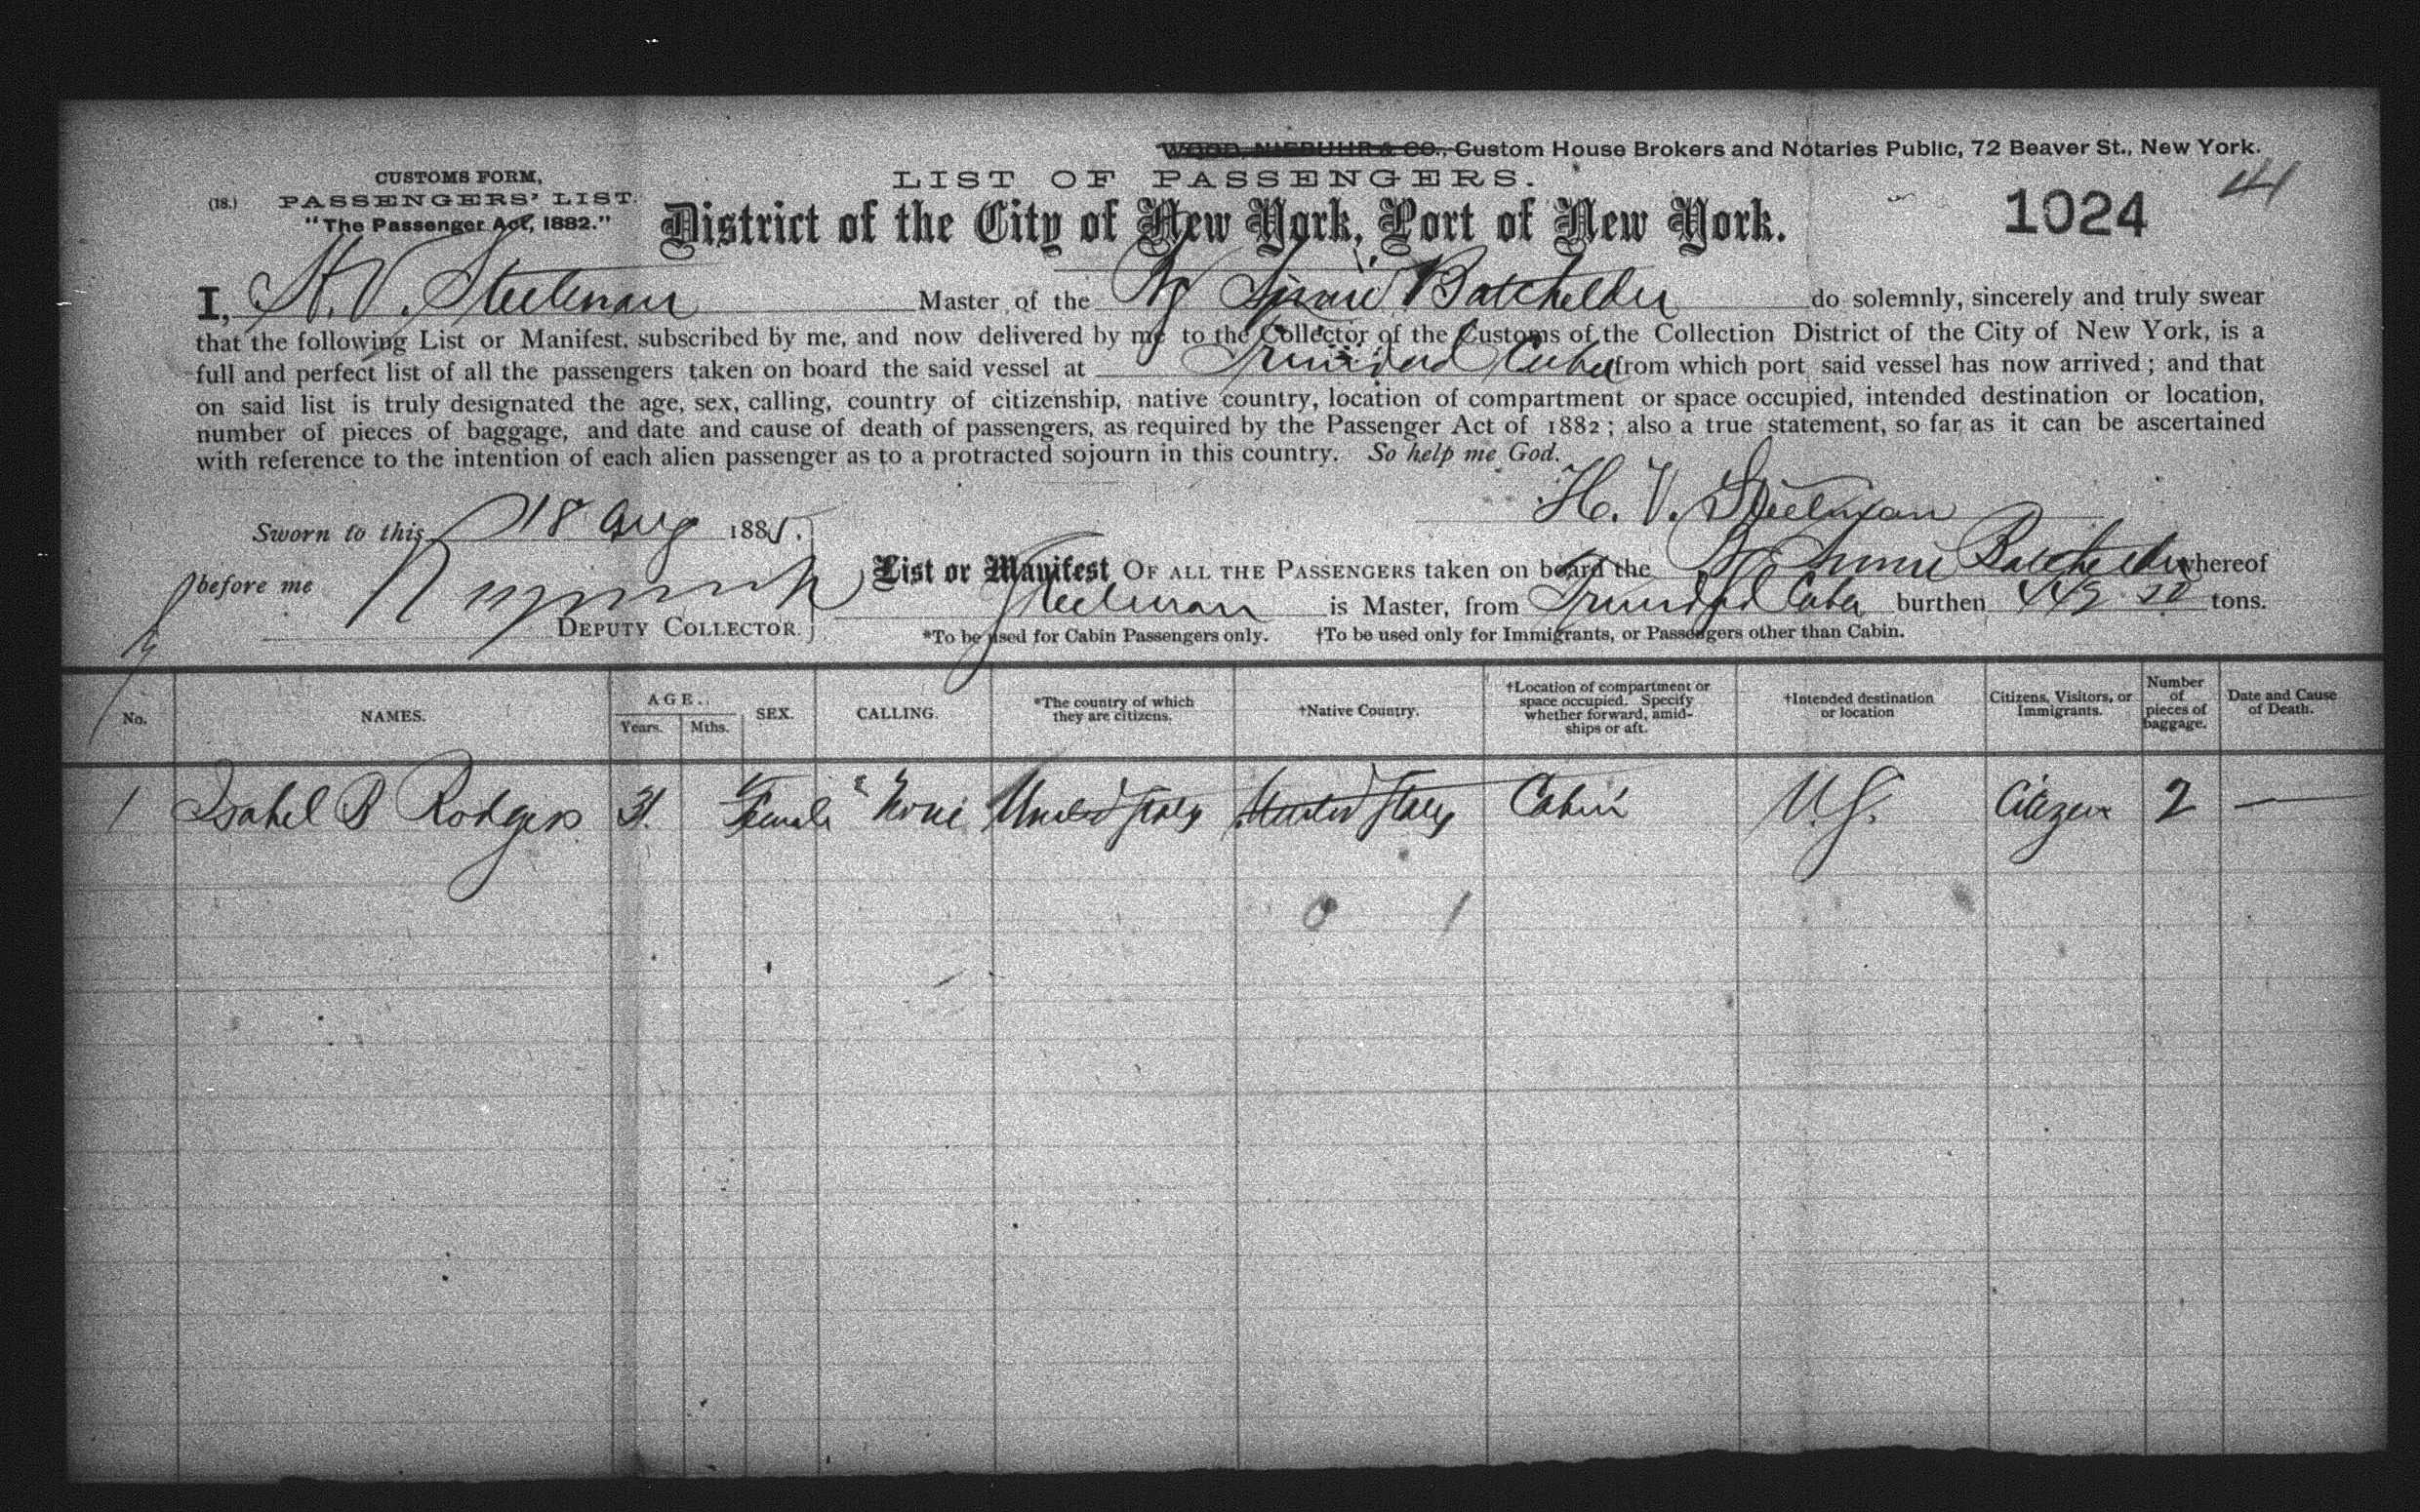 WOOD, NIEBUHR & CO., Custom House Brokers and Notaries Public, 72 Beaver St., New York.
CUSTOMS FORM,
LIST OF PASSENGERS.
(18.) PASSENGERS' LIST.
"The Passenger Act, 1882."
District of the City of New York, Port of New York.
1024
I, H. V. Steelman Master of the Batchelder do solemnly, sincerely and truly swear
that the following List or Manifest, subscribed by me, and now delivered by me to the Collector of the Customs of the Collection District of the City of New York, is a
full and perfect list of all the passengers taken on board the said vessel at Trinidad Cuba from which port said vessel has now arrived; and that
on said list is truly designated the age, sex, calling, country of citizenship, native country, location of compartment or space occupied, intended destination or location,
number of pieces of baggage, and date and cause of death of passengers, as required by the Passenger Act of 1882; also a true statement, so far as it can be ascertained
with reference to the intention of each alien passenger as to a protracted sojourn in this country. So help me God.
H. V. Steelman
Sworn to this 18 Aug 1885.
before me
List or Manifest OF ALL THE PASSENGERS taken on board the Batchelder whereof
Steelman is Master, from Trinidad Cuba burthen tons.
DEPUTY COLLECTOR.
*To be used for Cabin Passengers only. †To be used only for Immigrants, or Passengers other than Cabin.
No. NAMES. AGE. Years. Mths. SEX. CALLING. *The country of which they are citizens. †Native Country. †Location of compartment or space occupied. Specify whether forward, amidships or aft. †Intended destination or location Citizens, Visitors, or Immigrants. Number of pieces of baggage. Date and Cause of Death.
1 Isabel B Rodgers 31 Female None United States United States Cabin U.S. Citizen 2 —
0 1